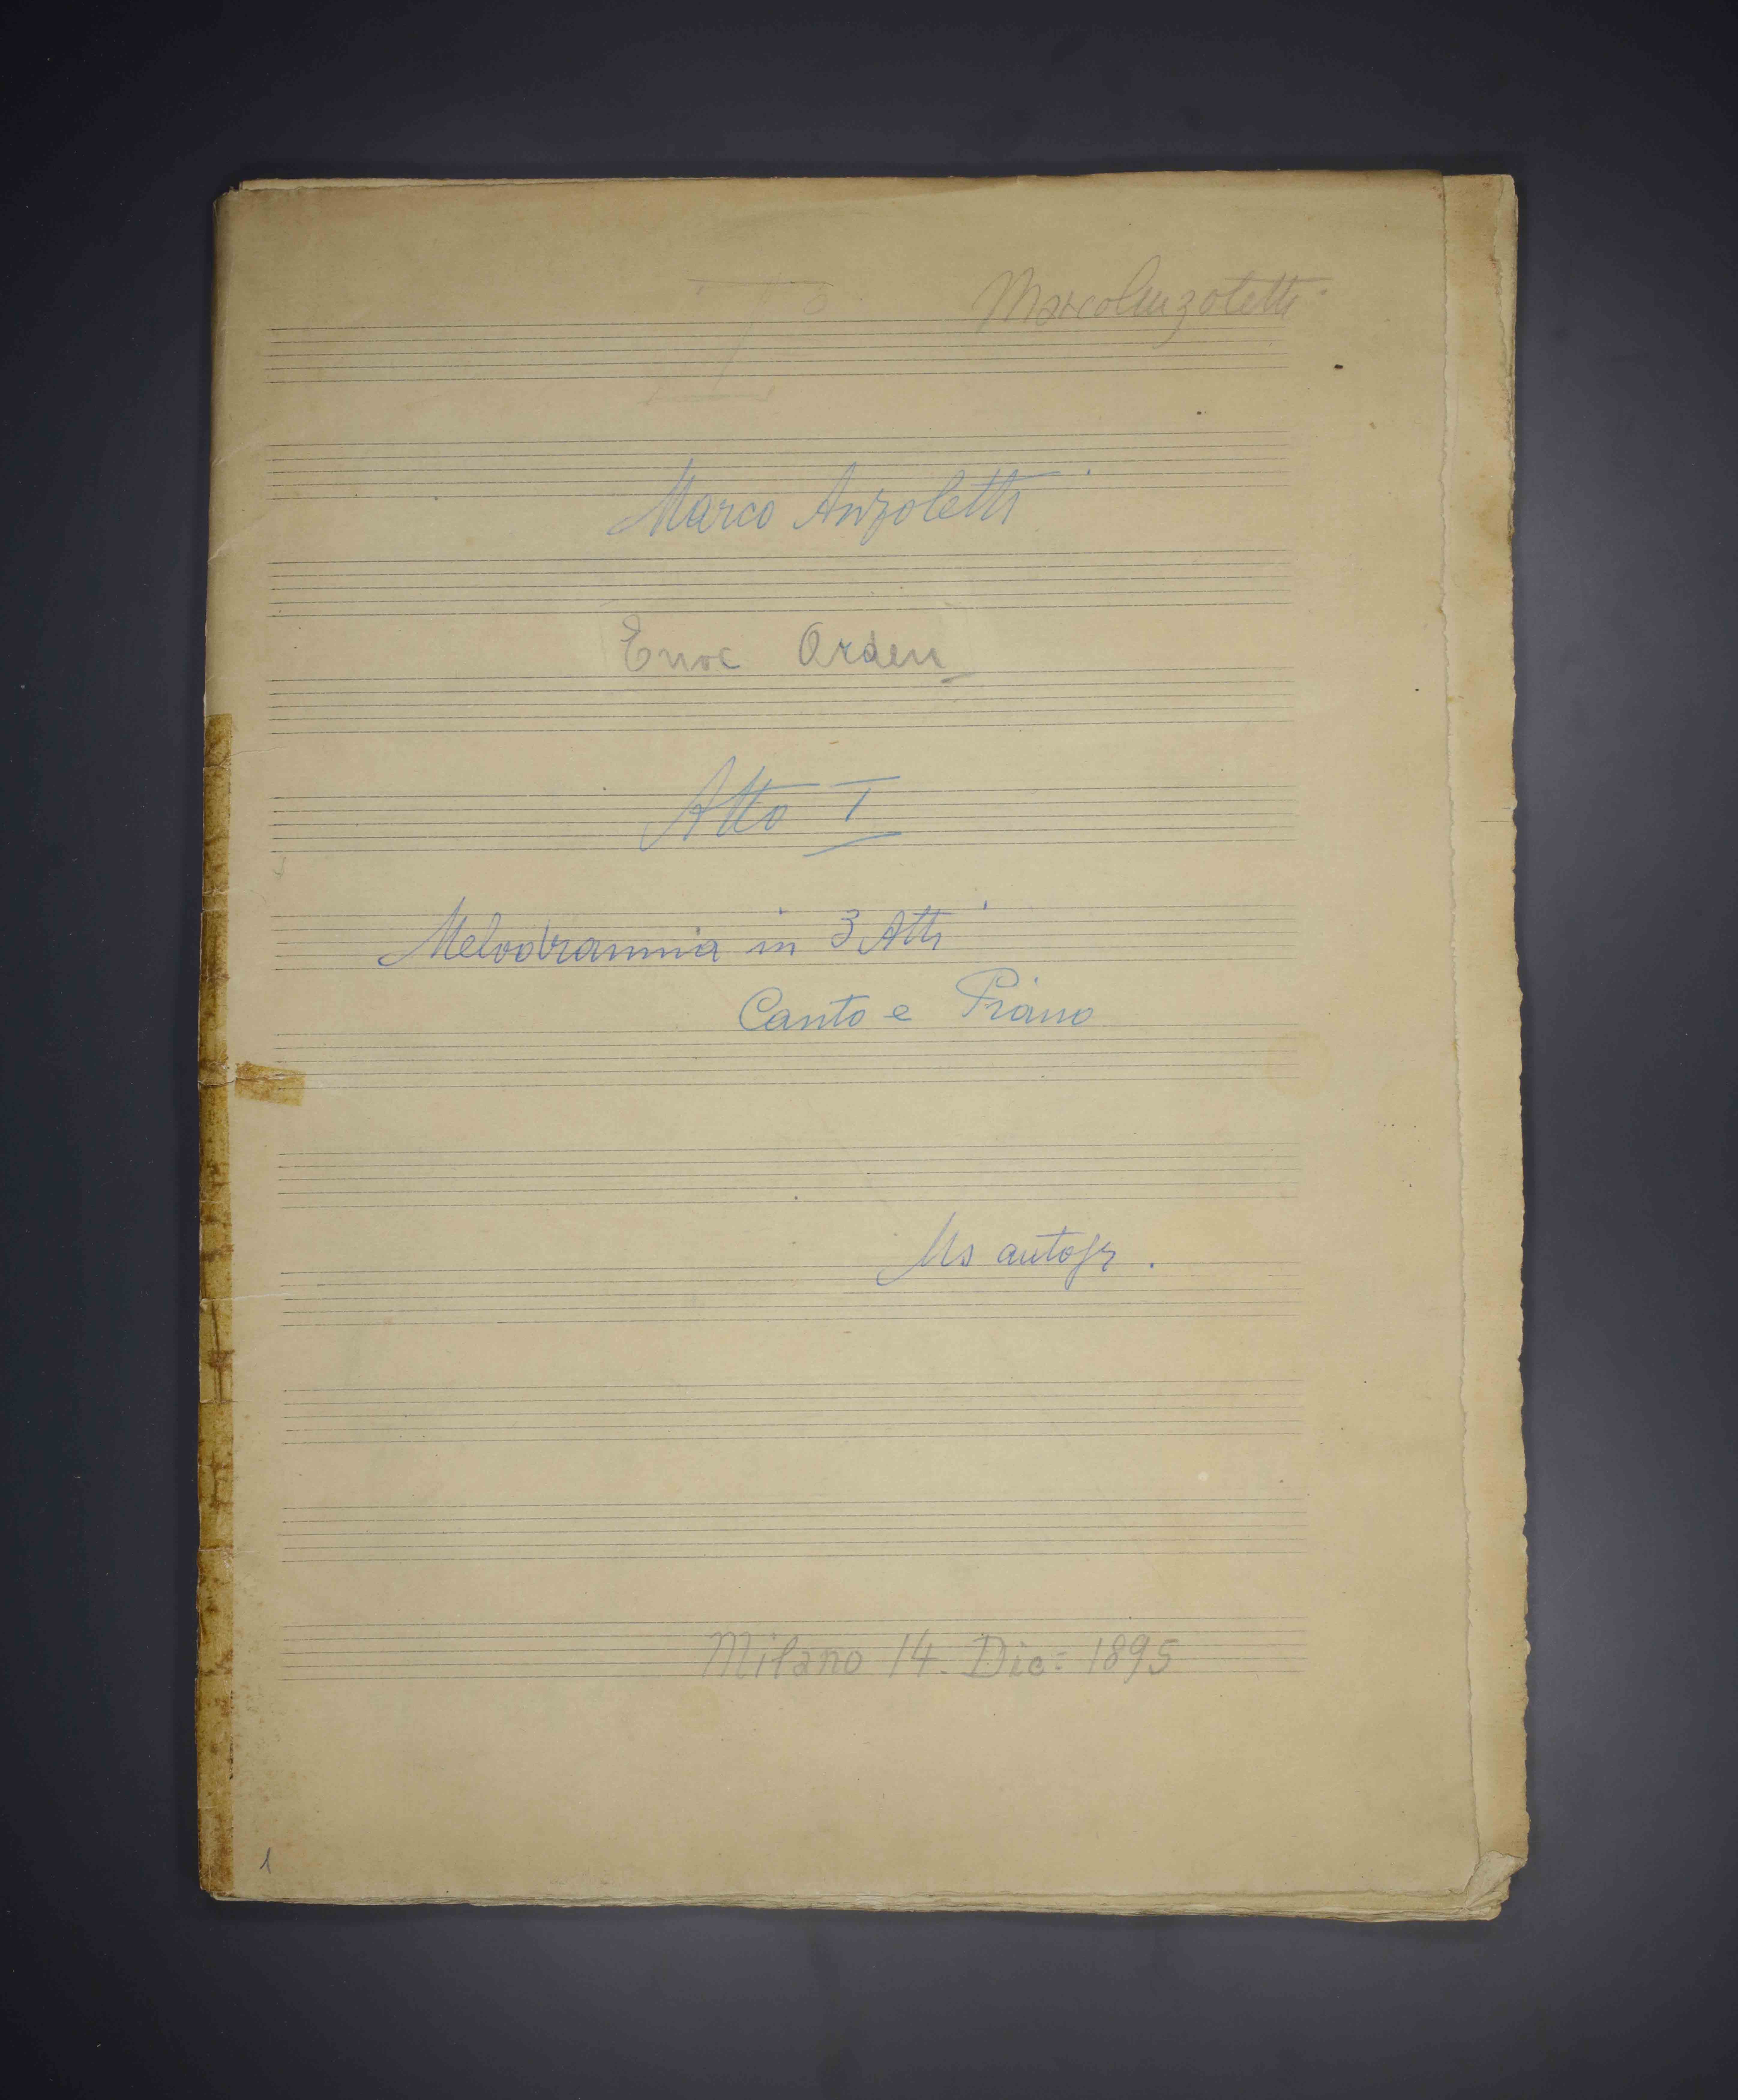 I°
Marco Anzoletti
Marco Anzoletti
Enoc Arden
Atto I
Melodramma in 3 Atti
Canto e Piano
Ms autogr.
Milano 14. Dic: 1895
1